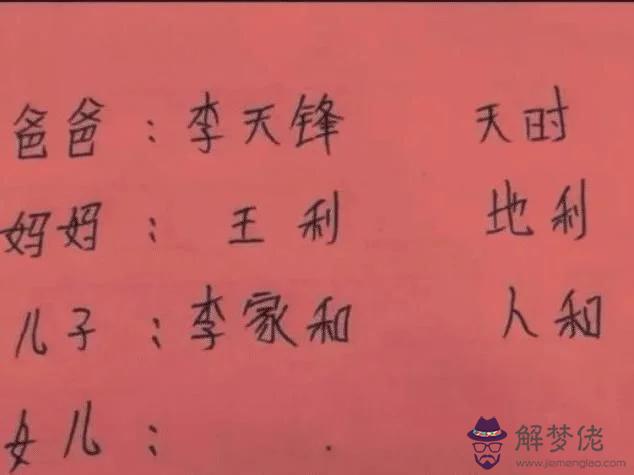 爸爸：李天锋 天时
妈妈：王利 地利
儿子：李家和 人和
女儿：
解梦佬
www.jiemenglao.com